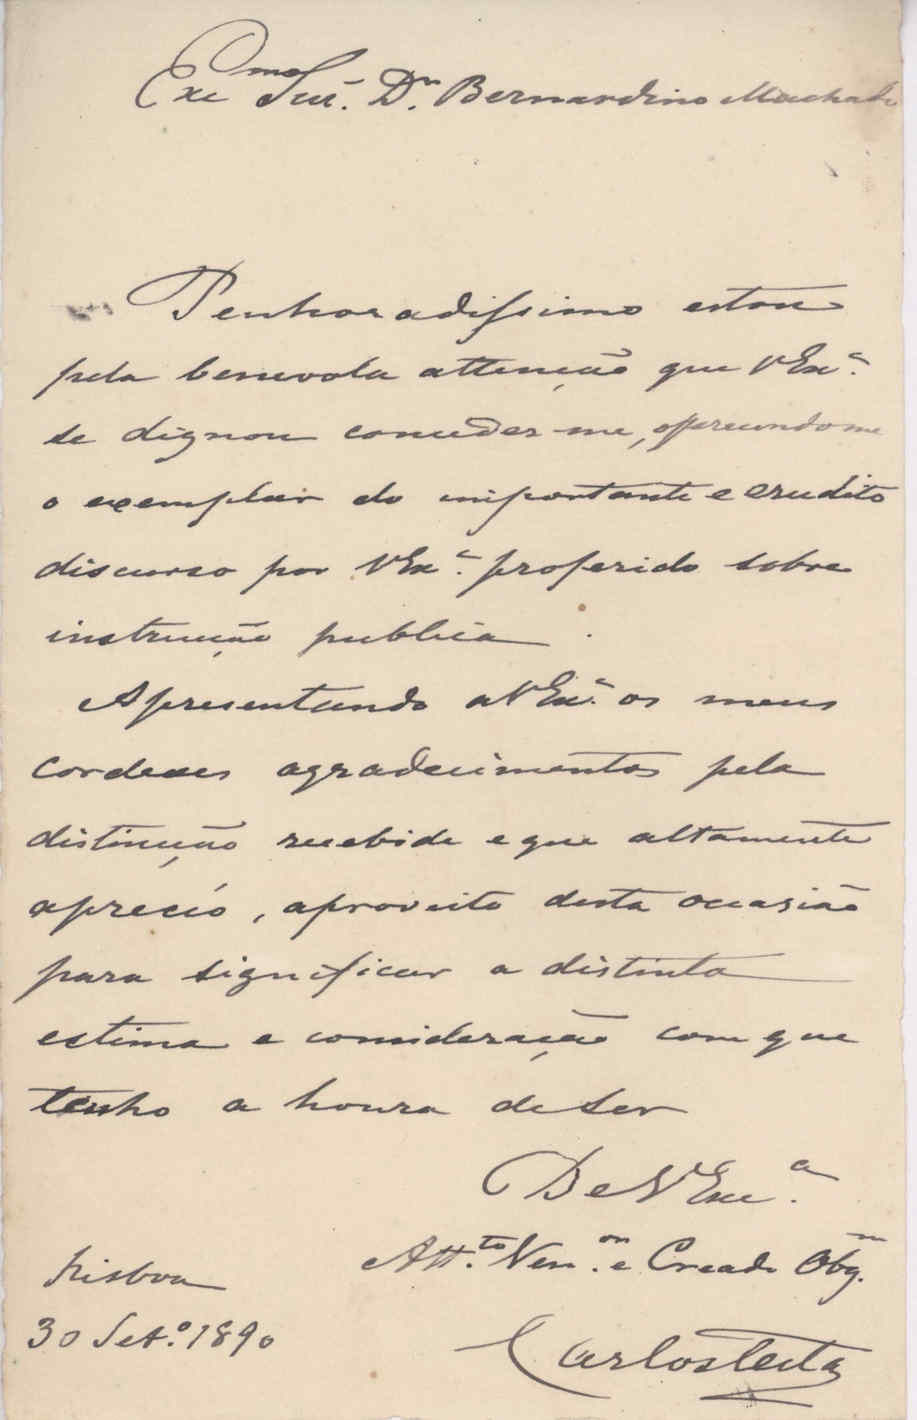 Exc.mo Snr. Dr. Bernardino Machado
Penhoradissimo estou
pela benevola attenção que V Ex.ª
se dignou conceder-me, offerecendo me
o exemplar do importante e erudito
discurso por V Ex.ª proferido sobre
instrucção publica.
Apresentando a V Ex.ª os meus
cordeaes agradecimentos pela
distincção recebida e que altamente
aprecio, aproveito desta occasião
para significar a distinta
estima e consideração com que
tenho a honra de ser
De V Exc.ª
Att.to Ven.or e Creado Obg.
Lisboa
30 Set.º 1890
Carlos Testa